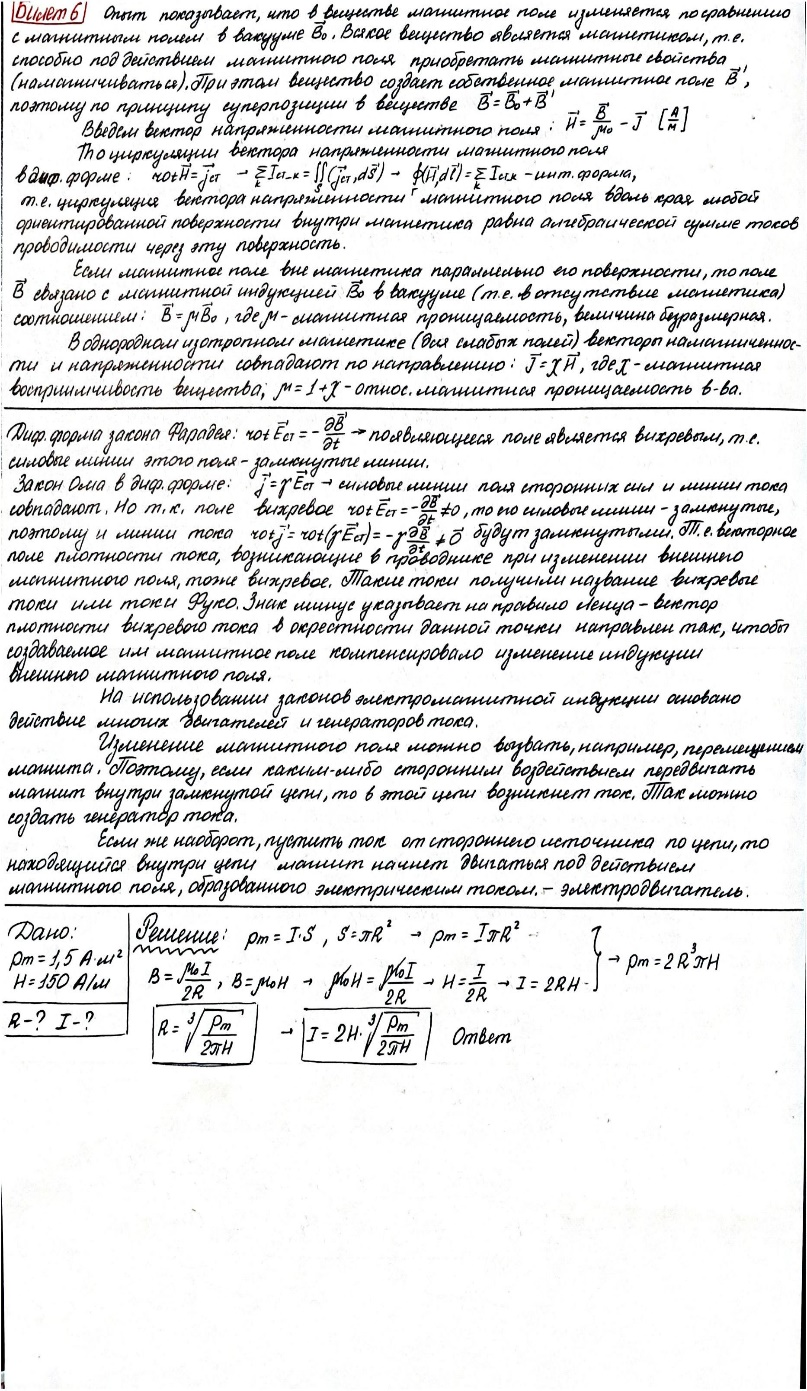 Билет 6 Опыт показывает, что в веществе магнитное поле изменяется по сравнению
с магнитным полем в вакууме B⃗₀. Всякое вещество является магнетиком, т.е.
способно под действием магнитного поля приобретать магнитные свойства
(намагничиваться). При этом вещество создает собственное магнитное поле B⃗',
поэтому по принципу суперпозиции в веществе B⃗ = B⃗₀ + B⃗'
Введем вектор напряженности магнитного поля: H⃗ = B⃗/μ₀ - J⃗ [А/м]
Th о циркуляции вектора напряженности магнитного поля
в диф. форме: rot H⃗ = j⃗ст → Σₖ Iст_к = ∬_S (j⃗ст, dS⃗) → ∮_Γ (H⃗, dl⃗) = Σₖ Iст.к - инт. форма,
т.е. циркуляция вектора напряженности магнитного поля вдоль края любой
ориентированной поверхности внутри магнетика равна алгебраической сумме токов
проводимости через эту поверхность.
Если магнитное поле вне магнетика параллельно его поверхности, то поле
B⃗ связано с магнитной индукцией B⃗₀ в вакууме (т.е. в отсутствие магнетика)
соотношением: B⃗ = μB⃗₀, где μ - магнитная проницаемость, величина безразмерная.
В однородном изотропном магнетике (для слабых полей) векторы намагниченнос-
ти и напряженности совпадают по направлению: J⃗ = χH⃗, где χ - магнитная
восприимчивость вещества; μ = 1 + χ - относ. магнитная проницаемость в-ва.
Диф. форма закона Фарадея: rot E⃗ст = - ∂B⃗/∂t → появляющееся поле является вихревым, т.е.
силовые линии этого поля - замкнутые линии.
Закон Ома в диф. форме: j⃗ = γE⃗ст → силовые линии поля сторонних сил и линии тока
совпадают. Но т.к. поле вихревое rot E⃗ст = - ∂B⃗/∂t ≠ 0, то его силовые линии - замкнутые,
поэтому и линии тока rot j⃗ = rot(γE⃗ст) = -γ ∂B⃗/∂t ≠ 0⃗ будут замкнутыми. Т.е. векторное
поле плотности тока, возникающие в проводнике при изменении внешнего
магнитного поля, тоже вихревое. Такие токи получили название вихревые
токи или токи Фуко. Знак минус указывает на правило Ленца - вектор
плотности вихревого тока в окрестности данной точки направлен так, чтобы
создаваемое им магнитное поле компенсировало изменение индукции
внешнего магнитного поля.
На использовании законов электромагнитной индукции основано
действие многих двигателей и генераторов тока.
Изменение магнитного поля можно вызвать, например, перемещением
магнита. Поэтому, если каким-либо сторонним воздействием передвигать
магнит внутри замкнутой цепи, то в этой цепи возникнет ток. Так можно
создать генератор тока.
Если же наоборот, пустить ток от стороннего источника по цепи, то
находящийся внутри цепи магнит начнет двигаться под действием
магнитного поля, образованного электрическим током. - электродвигатель.
Дано:
pm = 1,5 А·м²
H = 150 А/м
R - ? I - ?
Решение: pm = I·S, S = πR² → pm = IπR²
B = μ₀I/2R, B = μ₀H → μ₀H = μ₀I/2R → H = I/2R → I = 2RH } → pm = 2R³πH
R = ∛(pm/2πH) → I = 2H·∛(pm/2πH) Ответ